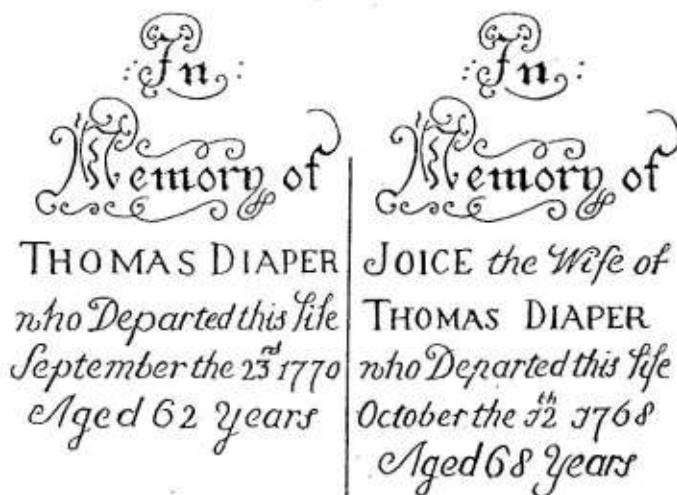 In
Memory of
THOMAS DIAPER
who Departed this life
September the 23rd 1770
Aged 62 Years
In
Memory of
JOICE the Wife of
THOMAS DIAPER
who Departed this life
October the 12th 1768
Aged 68 Years